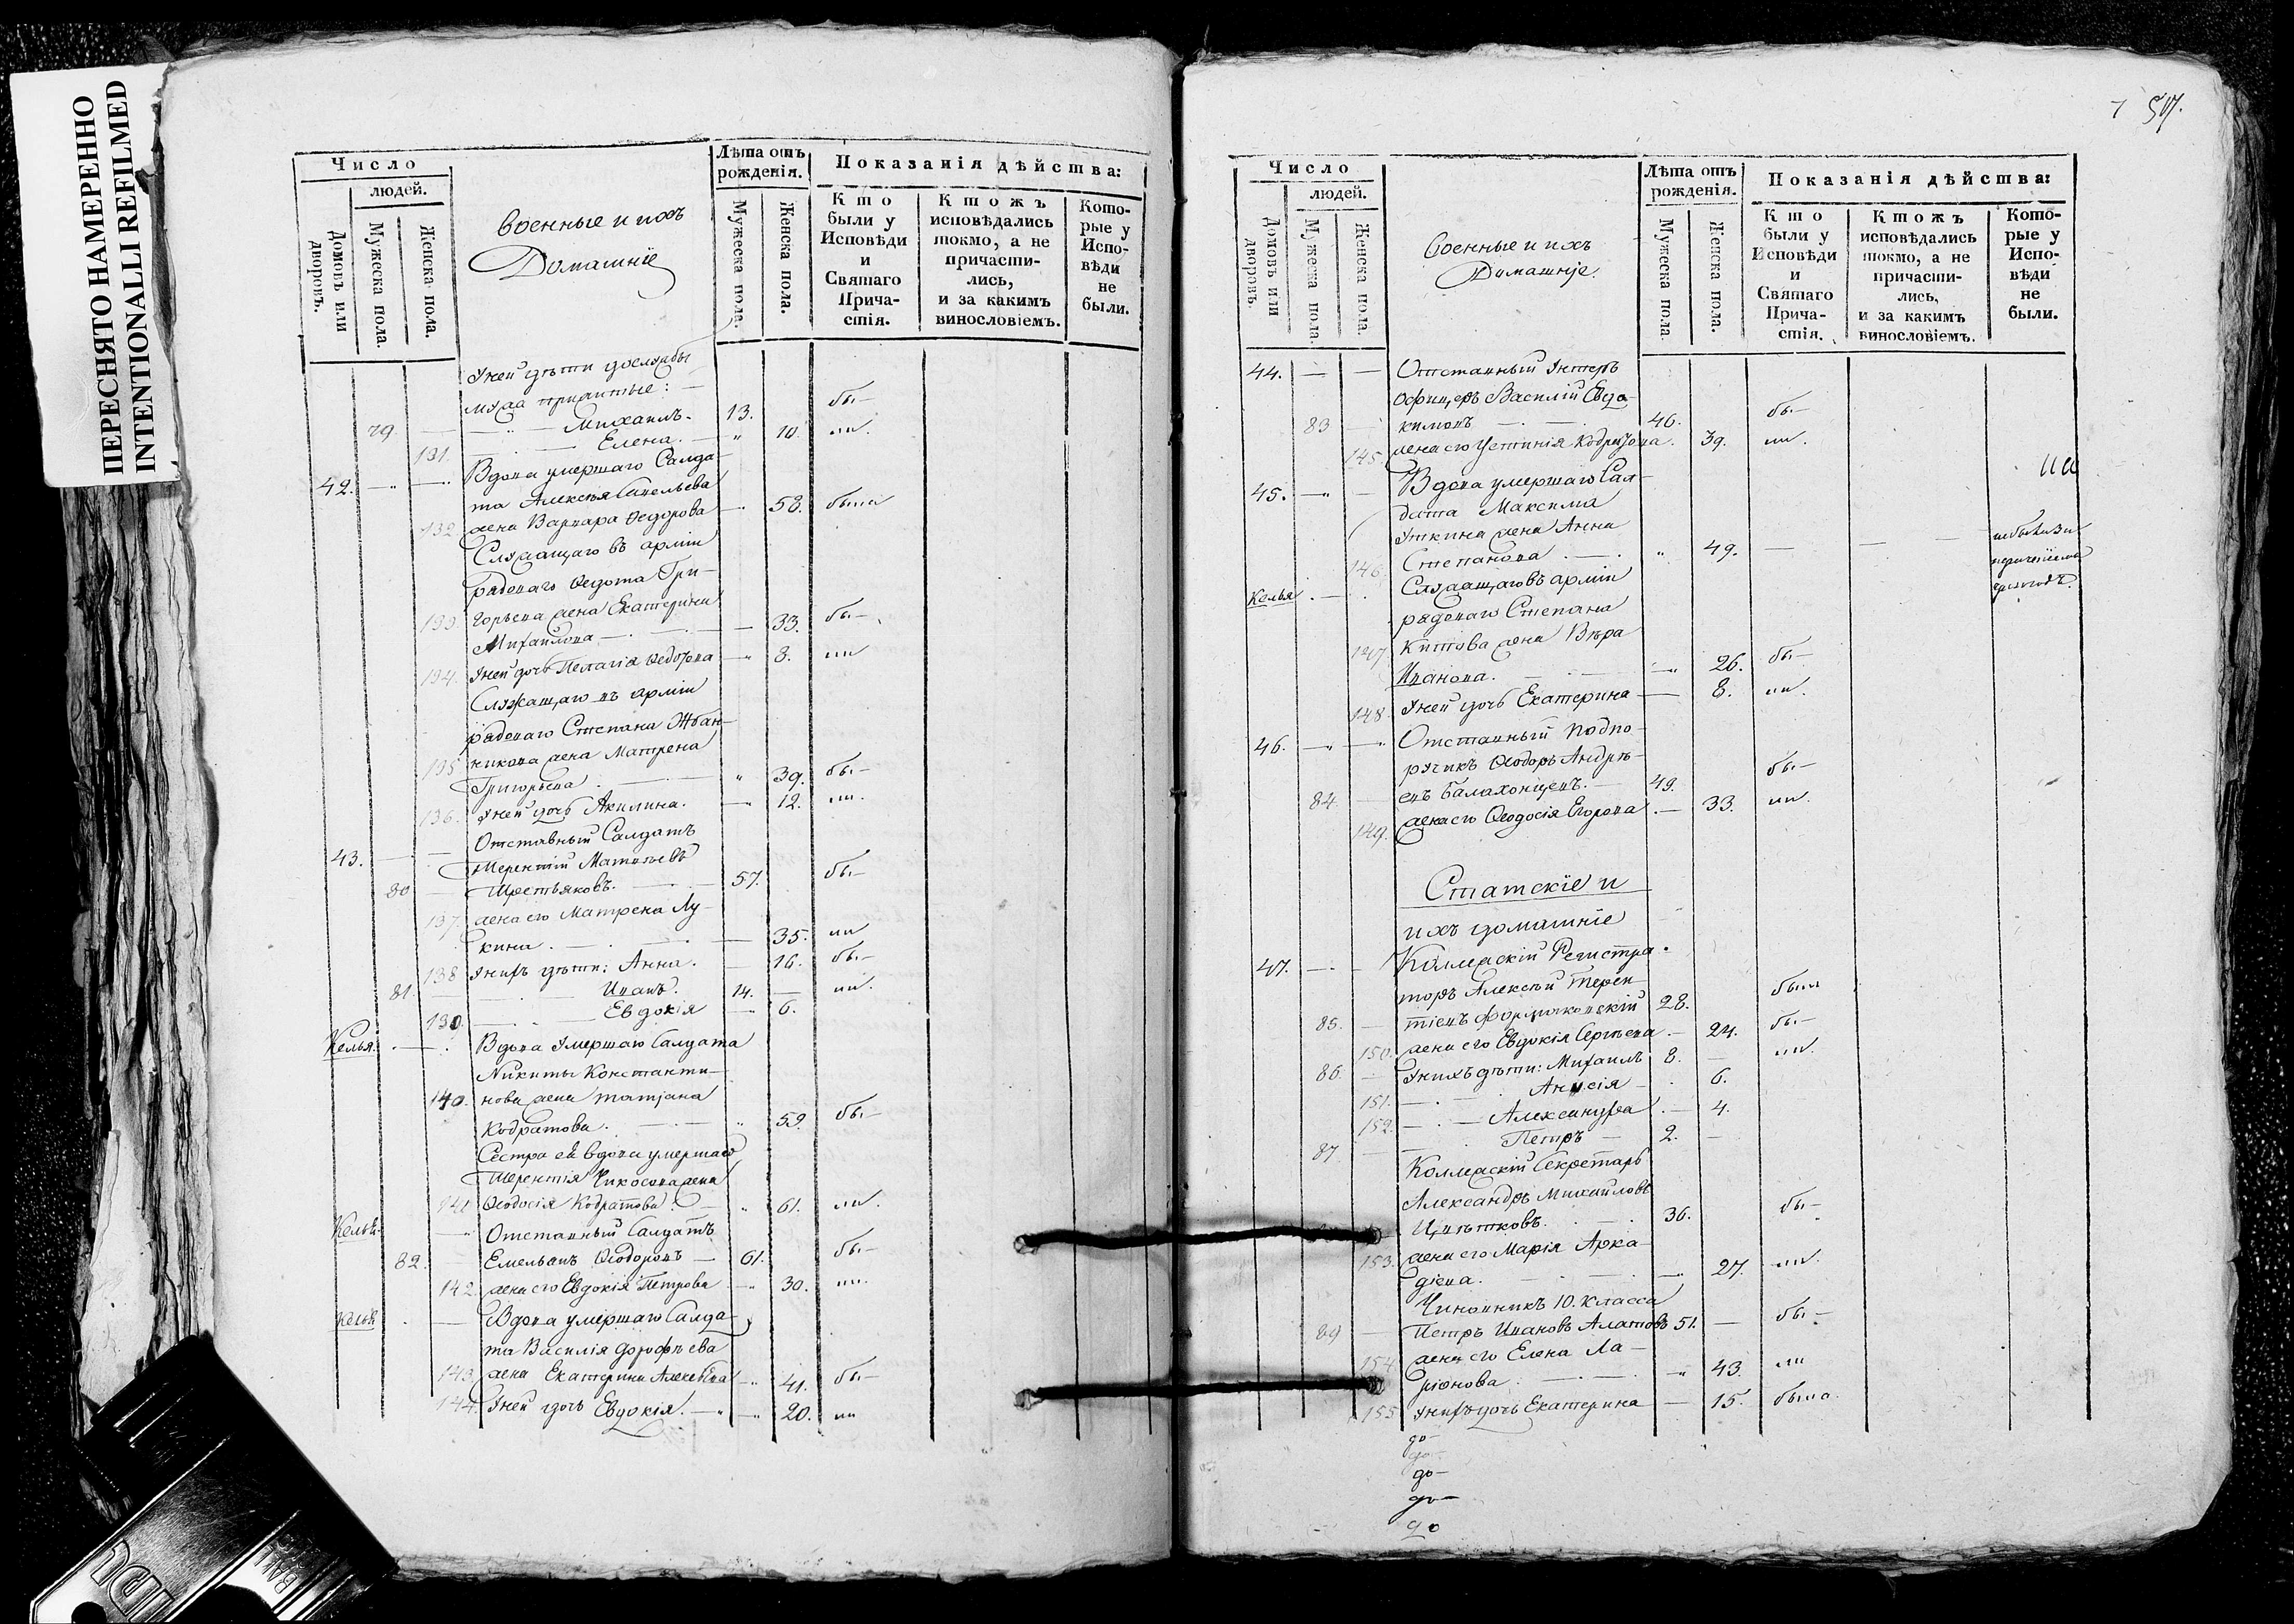 ПЕРЕСНЯТО НАМЕРЕННО
INTENTIONALLI REFILMED
Число
людей.
Домовъ или дворовъ.
Мужеска пола.
Женска пола.
Военные и ихъ
Домашніе
Лѣта отъ рожденія.
Мужеска пола.
Женска пола.
Показанія дѣйства:
Кто были у Исповѣди и Святаго Прича-стія.
Ктожъ исповѣдались токмо, а не причасти-лись, и за какимъ винословіемъ.
Кото-рые у Испо-вѣди не были.
Уней дѣти
79. Михаилъ. 13. бы—
131. Елена. 10. ли.
42. Вдова умершаго Салда-
та Алексѣя Савельева
132 жена Варвара Ѳедорова 58. была
Служащаго въ арміи
рядоваго Ѳедота Гри-
133 горьева жена Екатерина
Михайлова 33. бы—
134. Уней дочь Пелагія Ѳедотова 8. ли
Служащаго въ арміи
рядоваго Степана Жбан-
135 никова жена Матрена
Григорьева 39. бы—
136. Уней дочь Акилина. 12. ли.
43. Отставный Салдатъ
Терентій Матвѣевъ
80 Третьяковъ. 57. бы—
137. жена его Матрена Лу-
кина. 35. ли
138 Унихъ дѣти: Анна. 16. бы—
81. Иванъ. 14. ли.
139. Евдокія 6.
Келья. Вдова умершаго Салдата
Никиты Константи-
140. нова жена Татіана
Кодратова. 59. бы—
Сестра ей вдова умершаго
Терентія жена
141 Ѳеодосія Кодратова. 61. ли.
Келья. Отставный Салдатъ
82. Емельянъ Ѳеодоровъ 61. бы—
142. жена его Евдокія Петрова 30. ли.
Келья Вдова умершаго Салда-
та Василія Дорофѣева
143. жена Екатерина Алексѣева 41. бы—
144. Уней дочь Евдокія. 20. ли
517.
Число
людей.
Домовъ или дворовъ.
Мужеска пола.
Женска пола.
Военные и ихъ
Домашніе
Лѣта отъ рожденія.
Мужеска пола.
Женска пола.
Показанія дѣйства:
Кто были у Исповѣди и Святаго Прича-стія.
Ктожъ исповѣдались токмо, а не причасти-лись, и за какимъ винословіемъ.
Кото-рые у Испо-вѣди не были.
44. Отставный Унтеръ
Офицеръ Василій Евдо-
83 кимовъ 46. бы—
145. жена его Устинія Кодратова. 39. ли.
45. Вдова умершаго Сал-
дата Максима
Уткина жена Анна
146. Степанова 49.
Келья Служащаго въ арміи
рядоваго Степана
147 Китова жена Вѣра
Иванова. 26. бы—
148. Уней дочь Екатерина 8. ли.
46. Отставный Подпо-
ручикъ Ѳеодоръ Андрѣ-
84. евъ Балахонцевъ. 49. бы—
149. жена его Ѳеодосія Егорова 33. ли.
Статскіе и
ихъ домашніе
47. Коллежскій Регистра-
торъ Алексѣй Терен-
85. тіевъ 28. былъ
150. жена его Евдокія Сергѣева 24. бы—
86. Унихъ дѣти: Михаилъ 8. ли.
151. Анисія 6.
152. Александра 4.
87 Петръ 2.
Коллежскій Секретарь
Александръ Михайловъ
Цвѣтковъ. 36. бы—
153. жена его Марія Арка-
діева. 27. ли.
Чиновникъ 10. класса
89 Петръ Ивановъ Алатовъ 51. бы—
154 жена его Елена Ла-
ріонова 43. ли
155 Унихъ дочь Екатерина 15. была.
до—
до—
до—
до—
до